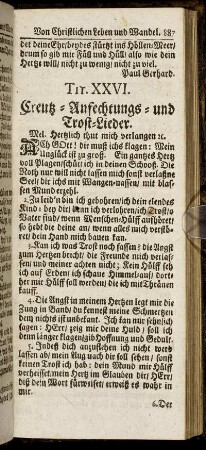 Von Christlichen Leben und Wandel. 887
Paul Gerhard.
TIT. XXVI.
Creutz - Anfechtungs - und
Trost-Lieder.
Mel. Hertzlich thut mich verlangen ꝛc.
ACh GOtt! dir muß ichs klagen: Mein
Unglück ist zu groß. Ein gantzes Hertz
voll Plagen schütt ich in deinen Schooß. Die
Noth nur will nicht lassen mich sonst verlaßne
Seel / dir ichs mit Wangen-nassen / mit blas-
sen Mund erzehl.
2. Zu leid'n bin ich gebohren / ich dein elendes
Kind:
Vater sind / wenn Menschen-Hülff aufhöret /
so hebt die deine an / wenn alles mich verstöh-
ret dein Hand mich bauen kan.
3. Kan ich was Trost noch fassen /
zum Hertzen bricht / die Freunde mich verlas-
sen / und meiner achten nicht; Kein Hülff seh
ich auf Erden / ich schaue Himmel-auf / dort
her mir Hülff soll werden / die ich mit Thränen
kauff.
4. Die Angst in meinem Hertzen legt mir die
Zung in Band / du kennest meine Schmertzen
dem nichts ist unbekant. Ich kan nur sehn / ich
sagen: HErr / zeig mir deine Huld / soll ich
denn länger klagen / gib Hoffnung und Gedult.
5. Indeß dich anzustehen ich nicht werd
lassen ab / mein Aug nach dir soll sehen / sonst
keinen Trost ich hab: dein Mund mir Hülff
verheisset / mein Hertz im Glauben dir / HErr /
diß dein Wort fürweiset / erweiß es wahr in
mir.
6. Der